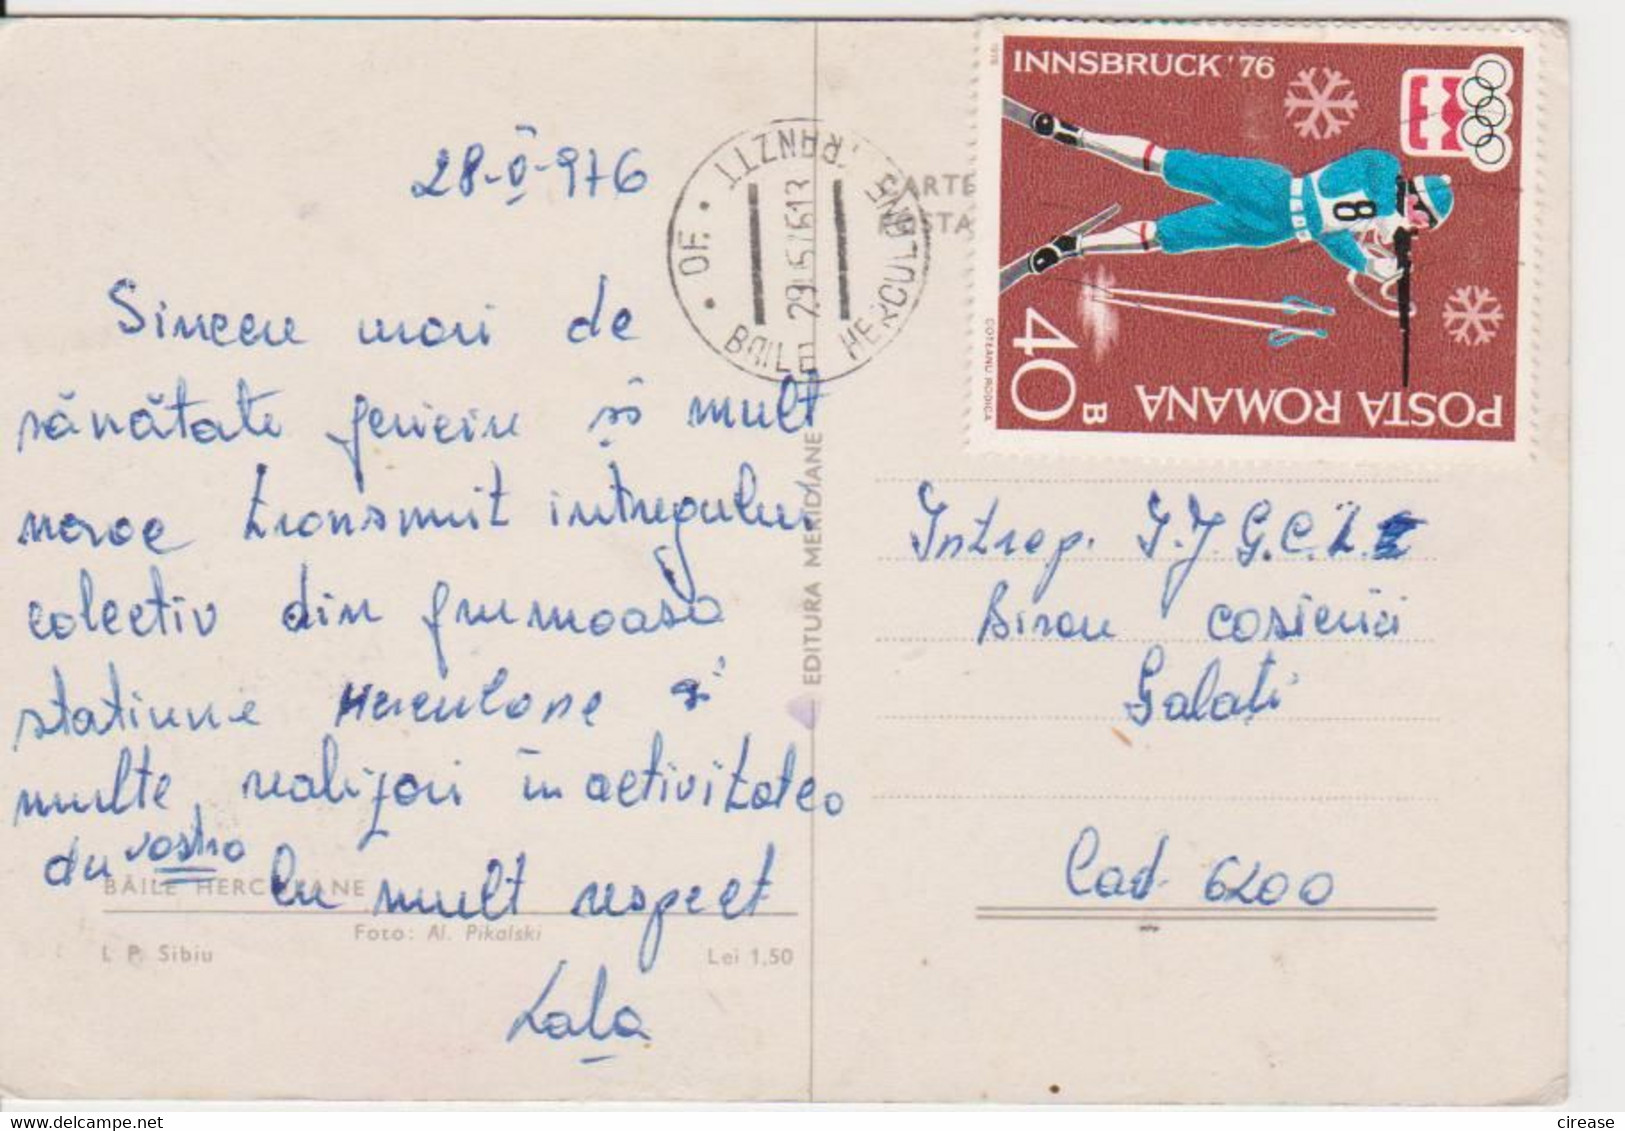 28-V-976
Sincere urari de
sănătate fericire și mult
noroc transmit intregului
colectiv din frumoasa
statiune Herculane și
multe realizari în activitatea
du vostra
Cu mult respect
Lala
BĂILE HERCULANE
Foto: Al. Pikalski
I. P. Sibiu
Lei 1,50
EDITURA MERIDIANE
OF. TRANZIT
BAILE HERCULANE
CARTE
POSTA
INNSBRUCK '76
1976
8
40 B
COTEANU RODICA
POSTA ROMANA
Intrep. I.J.G.C.L.
Birou
Galați
Cod 6200
cirease